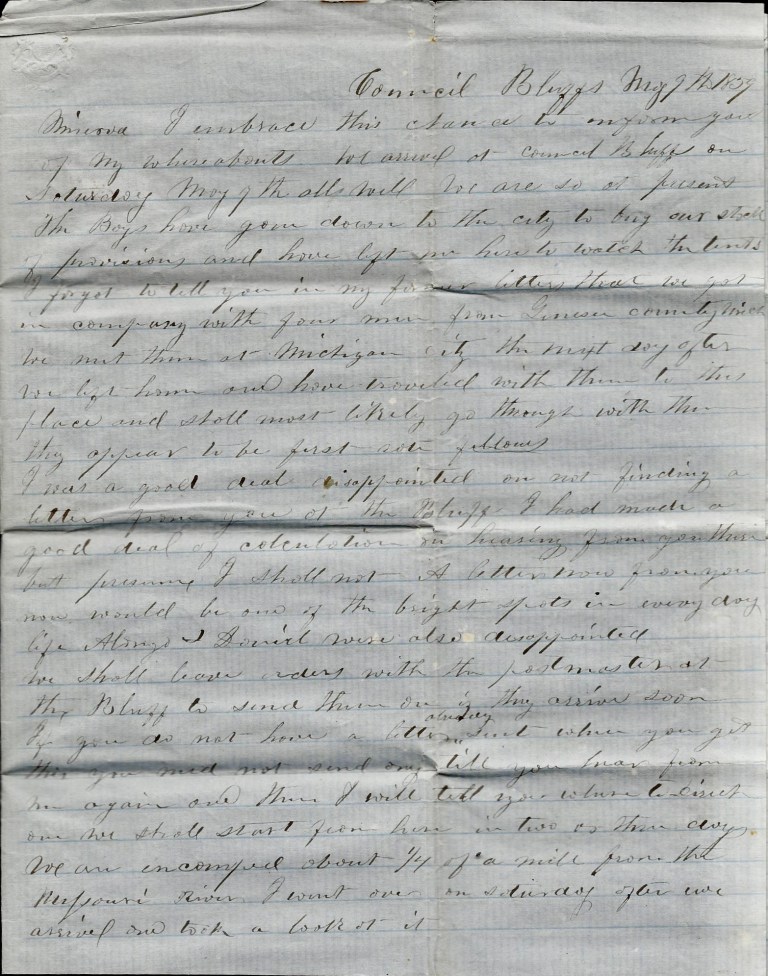 Council Bluffs May 9th 1859
Minerva I embrace this chance to inform you
of my whereabouts We arrived at council Bluffs on
Saturday May 7th all well We are so at present
The Boys have gone down to the city to buy our stock
of provisions and have left me here to watch the tents
I forgot to tell you in my former letters that we got
in company with four men from Genesee county Mich
we met them at Michigan city the next day after
we left home and have traveled with them to this
place and shall most likely go through with them
they appear to be first rate fellows
I was a good deal disappointed on not finding a
letter from you at the Bluffs I had made a
good deal of calculation on hearing from you there
but presume I shall not A letter now from you
now would be one of the bright spots in every day
life Alonzo & Daniel were also disappointed
we shall leave orders with the postmaster at
the Bluffs to send them on if they arrive soon
If you do not have a letter already sent when you get
this you need not send any till you hear from
me again and then I will tell you where to direct
one we shall start from here in two or three days
We are incamped about 1/4 of a mile from the
Missouri River I went over on saturday after we
arrived and took a look at it